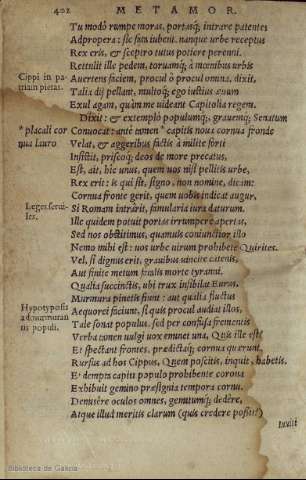 402 METAMOR.
Tu modò rumpe moras, portasq́; intrare patentes
Adpropera: sic fata iubent. nanque urbe receptus
Rex eris, & sceptro tutus potiere perenni.
Rettulit ille pedem, toruamq́; à mœnibus urbis
Cippi in patriam pietas.
Auertens faciem, procul ô procul omina, dixit,
Talia dij pellant, multoq́; ego iustius æuum
Exul agam, quàm me uideant Capitolia regem.
Dixit: & extemplò populumq́; grauemq́; Senatum
* placali cor
Conuocat: antè tamen * capitis noua cornua fronde
qua lauro
Velat, & aggeribus factis à milite forti
Insistit, priscoq́; deos de more precatus,
Est, ait, hic unus, quem uos nisi pellitis urbe,
Rex erit: is qui sit, signo, non nomine, dicam:
Cornua fronte gerit, quem uobis indicat augur,
Leges seruiles.
Si Romam intrârit, famularia iura daturum.
Ille quidem potuit portas irrumpere apertas,
Sed nos obstitimus, quamuis coniunctior illo
Nemo mihi est: uos urbe uirum prohibete Quirites.
Vel, si dignus erit, grauibus uincite catenis,
Aut finite metum fatalis morte tyranni.
Qualia succinctis, ubi trux insibilat Eurus,
Murmura pinetis fiunt: aut qualia fluctus
Hypotyposis
Aequorei faciunt, si quis procul audiat illos,
admurmurantis populi.
Tale sonat populus. sed per confusa frementis
Verba tamen uulgi uox eminet una, Quis ille est?
Et spectant frontes, prædictaq́; cornua quærunt.
Rursus ad hos Cippus, Quem poscitis, inquit, habetis.
Et dempta capiti populo prohibente corona
Exhibuit gemino præsignia tempora cornu.
Demisêre oculos omnes, gemitumq́; dedêre,
Atque illud meritis clarum (quis credere possit?)
Inuiti
Biblioteca de Galicia